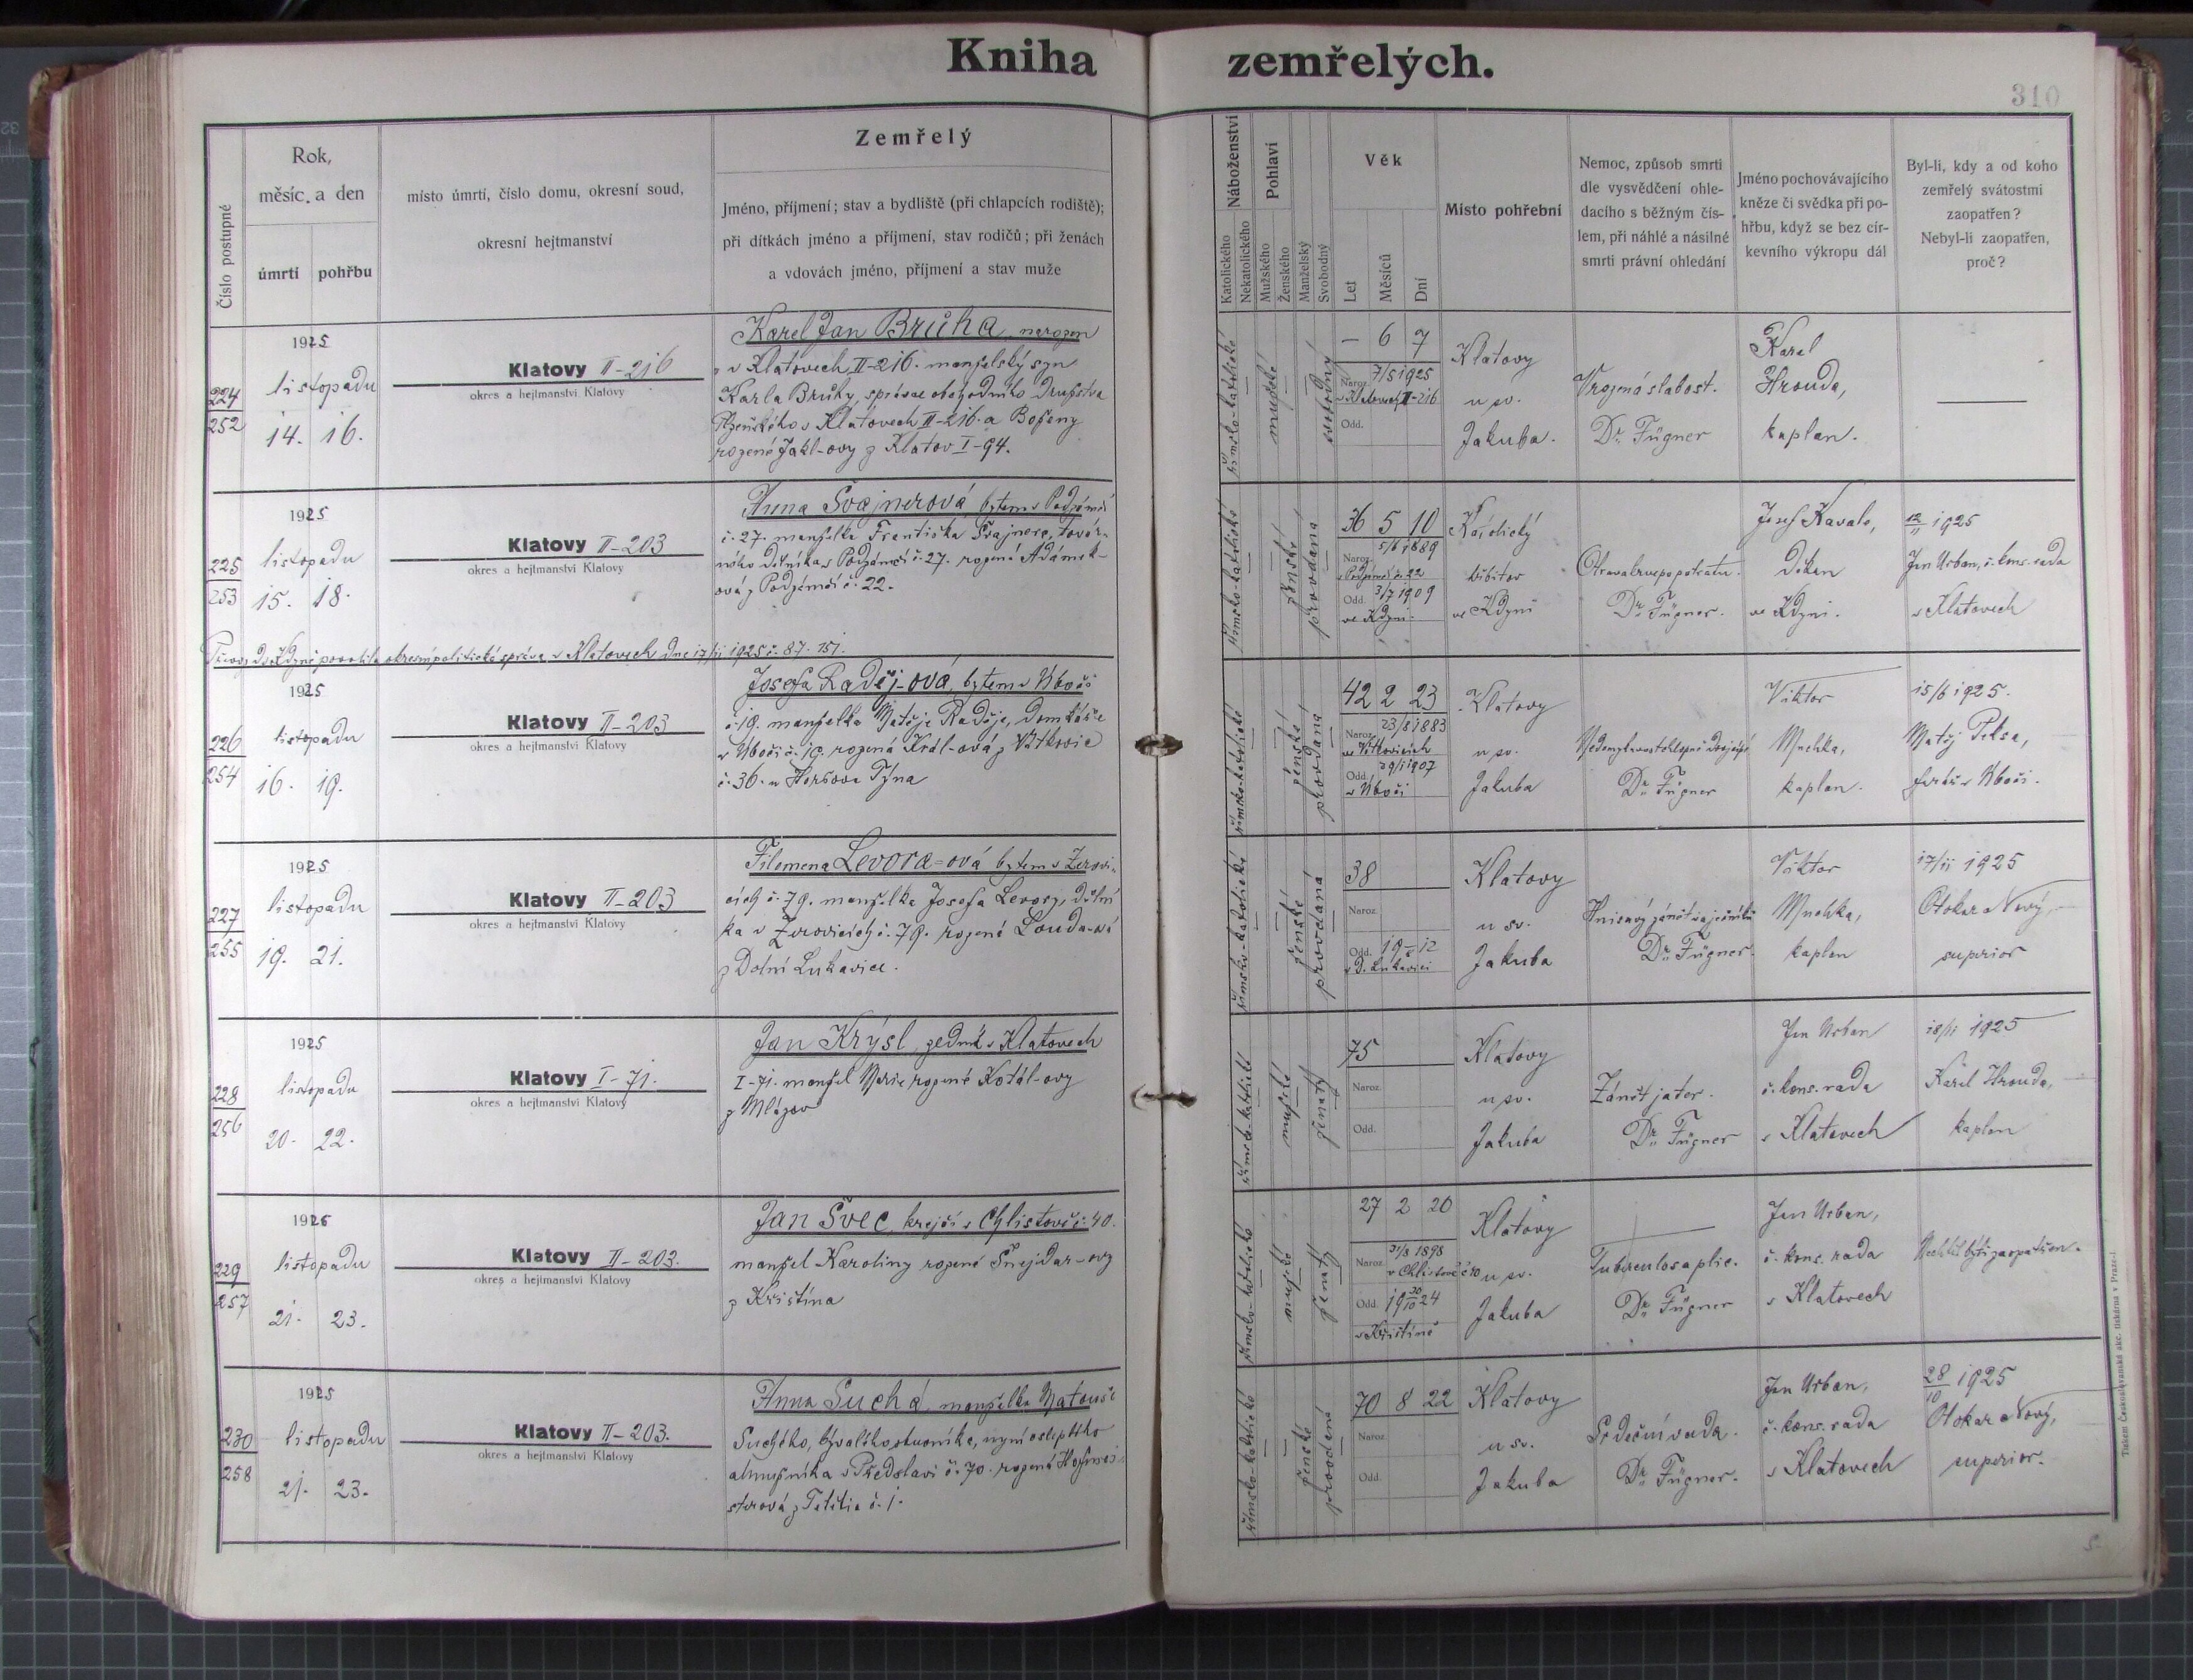 Kniha zemřelých.
310
Číslo postupné
Rok,
měsíc a den
úmrtí pohřbu
místo úmrtí, číslo domu, okresní soud,
okresní hejtmanství
Zemřelý
Jméno, příjmení; stav a bydliště (při chlapcích rodiště);
při dítkách jméno a příjmení, stav rodičů; při ženách
a vdovách jméno, příjmení a stav muže
Náboženství
Katolického
Nekatolického
Pohlaví
Mužského
Ženského
Manželský
Svobodný
Věk
Let
Měsíců
Dní
Místo pohřební
Nemoc, způsob smrti
dle vysvědčení ohle-
dacího s běžným čís-
lem, při náhlé a násilné
smrti právní ohledání
Jméno pochovávajícího
kněze či svědka při po-
hřbu, když se bez cír-
kevního výkropu dál
Byl-li, kdy a od koho
zemřelý svátostmi
zaopatřen?
Nebyl-li zaopatřen,
proč?
224
252
1925
listopadu
14. 16.
Klatovy II-216
okres a hejtmanství Klatovy
Karel Jan Brůha, narozen
v Klatovech II-216. manželský syn
Karla Brůhy, správce obchodního Družstva
Plzeňského v Klatovech II-216. a Boženy
rozené Jakl-ovy z Klatov I-94.
římsko-katolické
mužské
svobodný
- 6 7
Naroz. 7/5 1925
v Klatovech II-216
Odd.
Klatovy
u sv.
Jakuba.
Vrozená slabost.
Dr. Fügner
Karel
Hrouda,
kaplan.
—
225
253
1925
listopadu
15. 18.
Klatovy II-203
okres a hejtmanství Klatovy
Anna Švajnerová, bytem v Podzámčí
č. 27. manželka Františka Švajnera, továr-
ního dělníka v Podzámčí č. 27. rozená Adámek-
ová z Podzámčí č. 22.
římsko-katolické
ženské
provdaná
36 5 10
Naroz. 5/6 1889
v Podzámčí č. 22
Odd. 3/7 1909
ve Kdyni.
hřbitov
ve Kdyni
Otrava krve po potratu.
Dr. Fügner.
Josef Kavale,
děkan
ve Kdyni.
12/11 1925
Jan Urban, č. kons. rada
v Klatovech
Převoz do Kdyně povolila okresní politická správa v Klatovech dne 17/11 1925 č. 87.151.
226
254
1925
listopadu
16. 19.
Klatovy II-203
okres a hejtmanství Klatovy
Josefa Raděj-ová, bytem v Úboči
č. 19. manželka Matěje Raděje, domkáře
v Úboči č. 19. rozená Král-ová z Vítkovic
č. 36. u Horšova Týna
římsko-katolické
ženské
provdaná
42 2 23
Naroz. 23/8 1883
ve Vítkovicích
Odd. 29/1 1907
v Úboči
Klatovy
u sv.
Jakuba
Nedomykavost chlopně dvojcípé
Dr. Fügner
Viktor
Muchka,
kaplan.
15/6 1925.
Matěj Peksa,
farář v Úboči.
227
255
1925
listopadu
19. 21.
Klatovy II-203
okres a hejtmanství Klatovy
Filomena Levora-ová bytem v Žerovi-
cích č. 79. manželka Josefa Levory, dělní
ka v Žerovicích č. 79. rozená Louda-ová
z Dolní Lukavice.
římsko-katolické
ženské
provdaná
38
Naroz.
Odd.
v D. Lukavici
Klatovy
u sv.
Jakuba
Hnisavý zánět vaječníků
Dr. Fügner.
Viktor
Muchka,
kaplan
17/11 1925
Otokar Nový,
superior
228
256
1925
listopadu
20. 22.
Klatovy I-71.
okres a hejtmanství Klatovy
Jan Krýsl, zedník v Klatovech
I-71. manžel Marie rozené Kotál-ovy
z Mlázov
římsko-katolické
mužské
ženatý
75
Naroz.
Odd.
Klatovy
u sv.
Jakuba
Zánět jater.
Dr. Fügner
Jan Urban
č. kons. rada
v Klatovech
18/11 1925
Karel Hrouda,
kaplan
229
257
1925
listopadu
21. 23.
Klatovy II-203.
okres a hejtmanství Klatovy
Jan Švec, krejčí v Chlistově č. 40.
manžel Karoliny rozené Šnejdar-ovy
z Křištína
římsko-katolické
mužské
ženatý
27 2 20
Naroz. 31/8 1898
v Chlistově č. 40
Odd. 19 20/10 24
v Křištíně
Klatovy
u sv.
Jakuba
Tuberculosa plic.
Dr. Fügner
Jan Urban,
č. kons. rada
v Klatovech
Nechtěl býti zaopatřen.
230
258
1925
listopadu
21. 23.
Klatovy II-203.
okres a hejtmanství Klatovy
Anna Suchá, manželka Matouše
Suchého, bývalého stavovníka, nyní osleplého
almužníka v Předslavi č. 70. rozená Hofmei-
strová z Tetětic č. 1.
římsko-katolické
ženské
provdaná
70 8 22
Naroz.
Odd.
Klatovy
u sv.
Jakuba
Srdeční vada.
Dr. Fügner.
Jan Urban,
č. kons. rada
v Klatovech
28/10 1925
Otokar Nový,
superior.
Tiskem Československé akc. tiskárna v Praze-I.